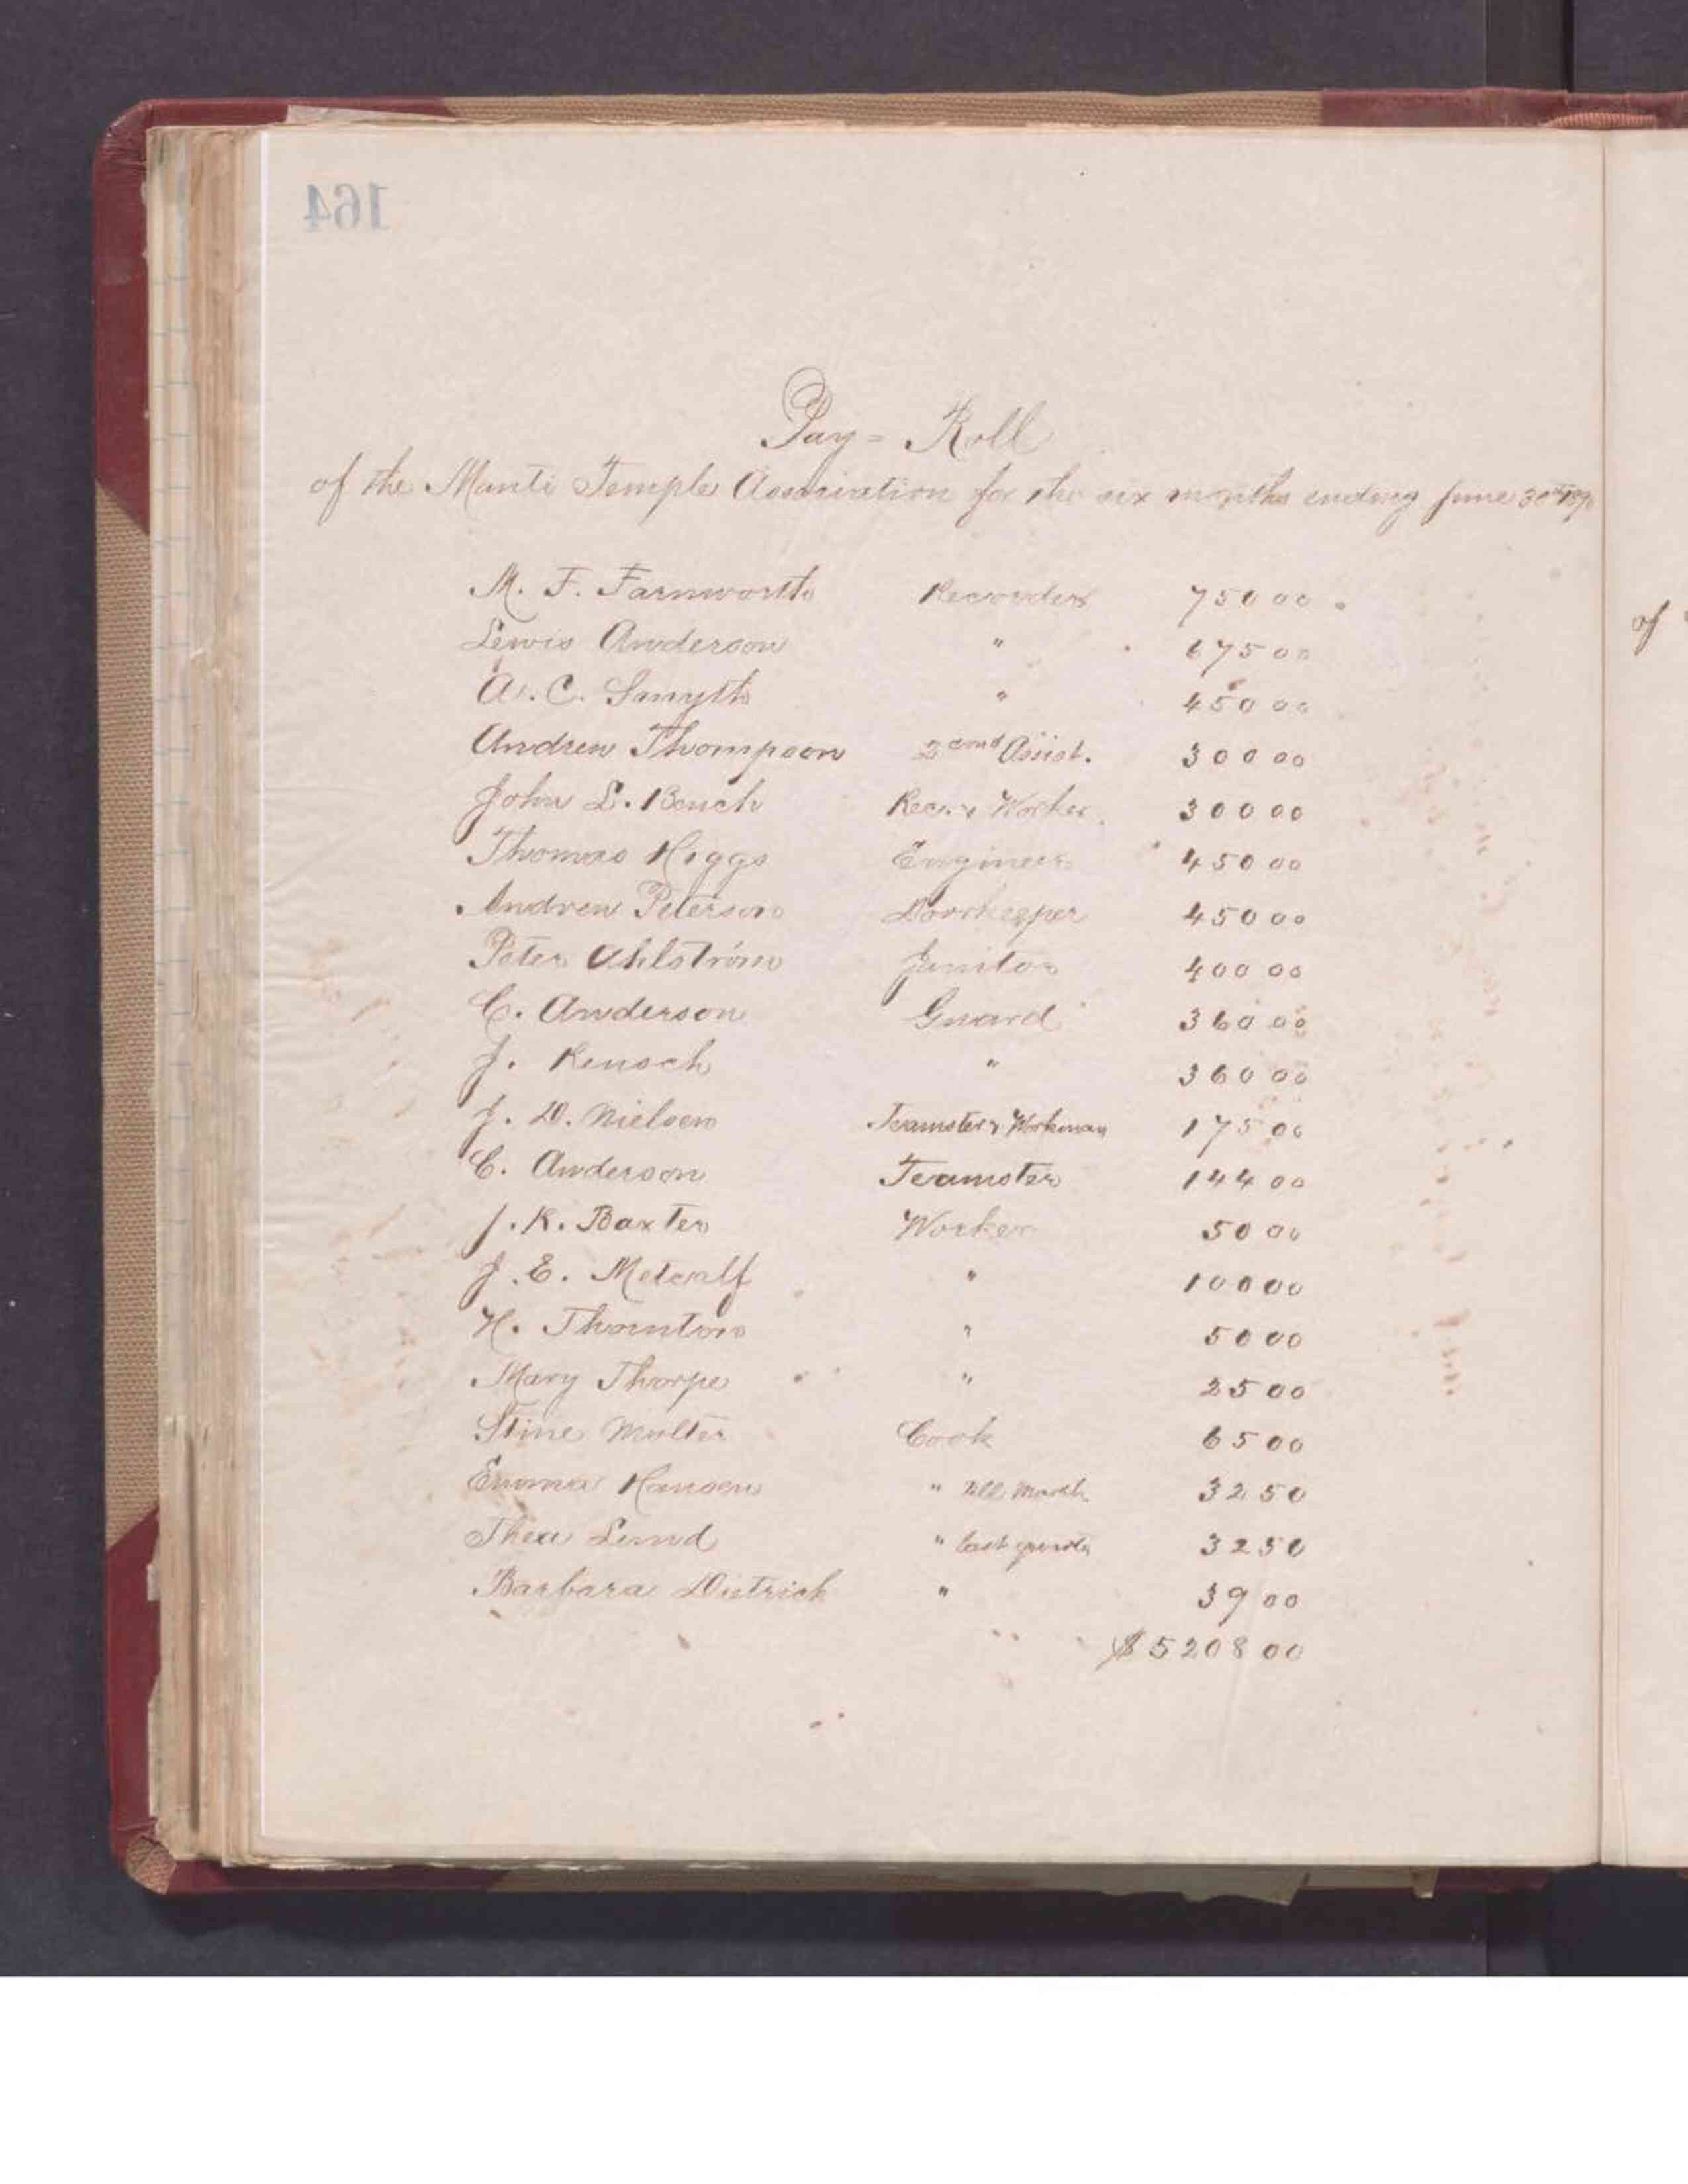 164
Pay = Roll
of the Manti Temple Association for the six months ending June 30th
M. F. Farnworth Recorder 750 00
Lewis Anderson " 675 00
A. C. Smyth " 450 00
Andrew Thompson 2cond Assist. 300 00
John L. Bench Rec. & Worker 300 00
Thomas Higgs Engineer 450 00
Andrew Peterson Doorkeeper 450 00
Peter Ahlström Janitor 400 00
C. Anderson Guard 360 00
J. Kensch " 360 00
J. D. Nielsen Teamster & Workman 175 00
C. Anderson Teamster 144 00
J. K. Baxter Worker 50 00
J. E. Metcalf " 100 00
H. Thornton " 50 00
Mary Thorpe " 25 00
Stine Molter Cook 65 00
Emma Hansen " till March 32 50
Thea Lund " last 32 50
Barbara Dietrich " 39 00
$ 5208 00
of